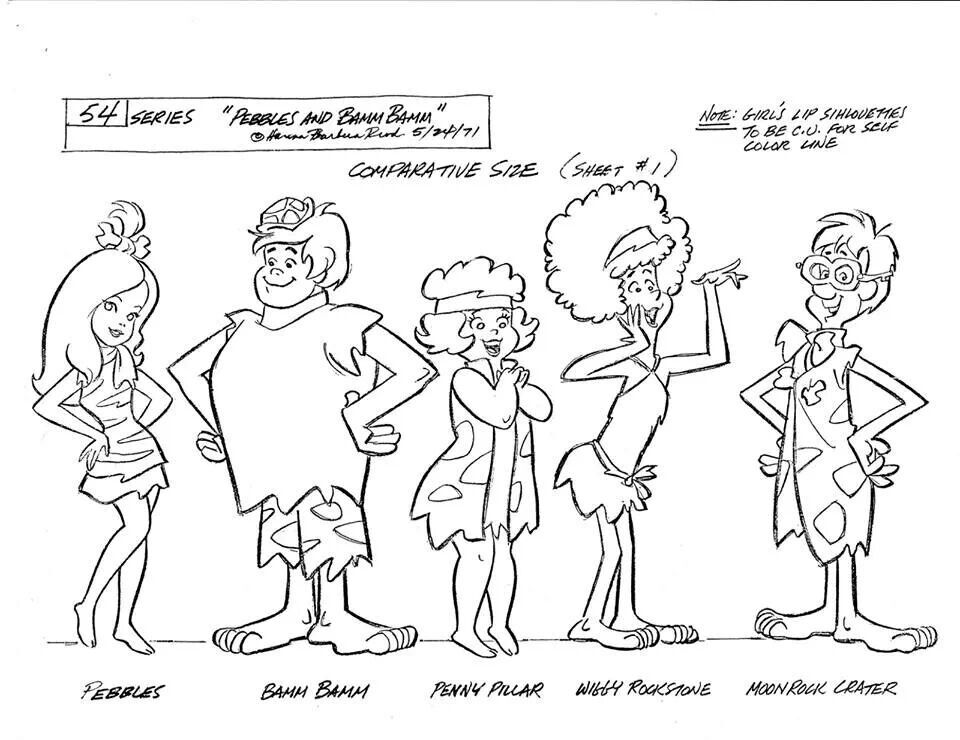 54 SERIES "PEBBLES AND BAMM BAMM"
© Hanna Barbera Prod 5/24/71
NOTE: GIRL'S LIP SIHLOUETTES
TO BE C.U. FOR SELF
COLOR LINE
COMPARATIVE SIZE (SHEET #1)
PEBBLES BAMM BAMM PENNY PILLAR WIGGY ROCKSTONE MOONROCK CRATER